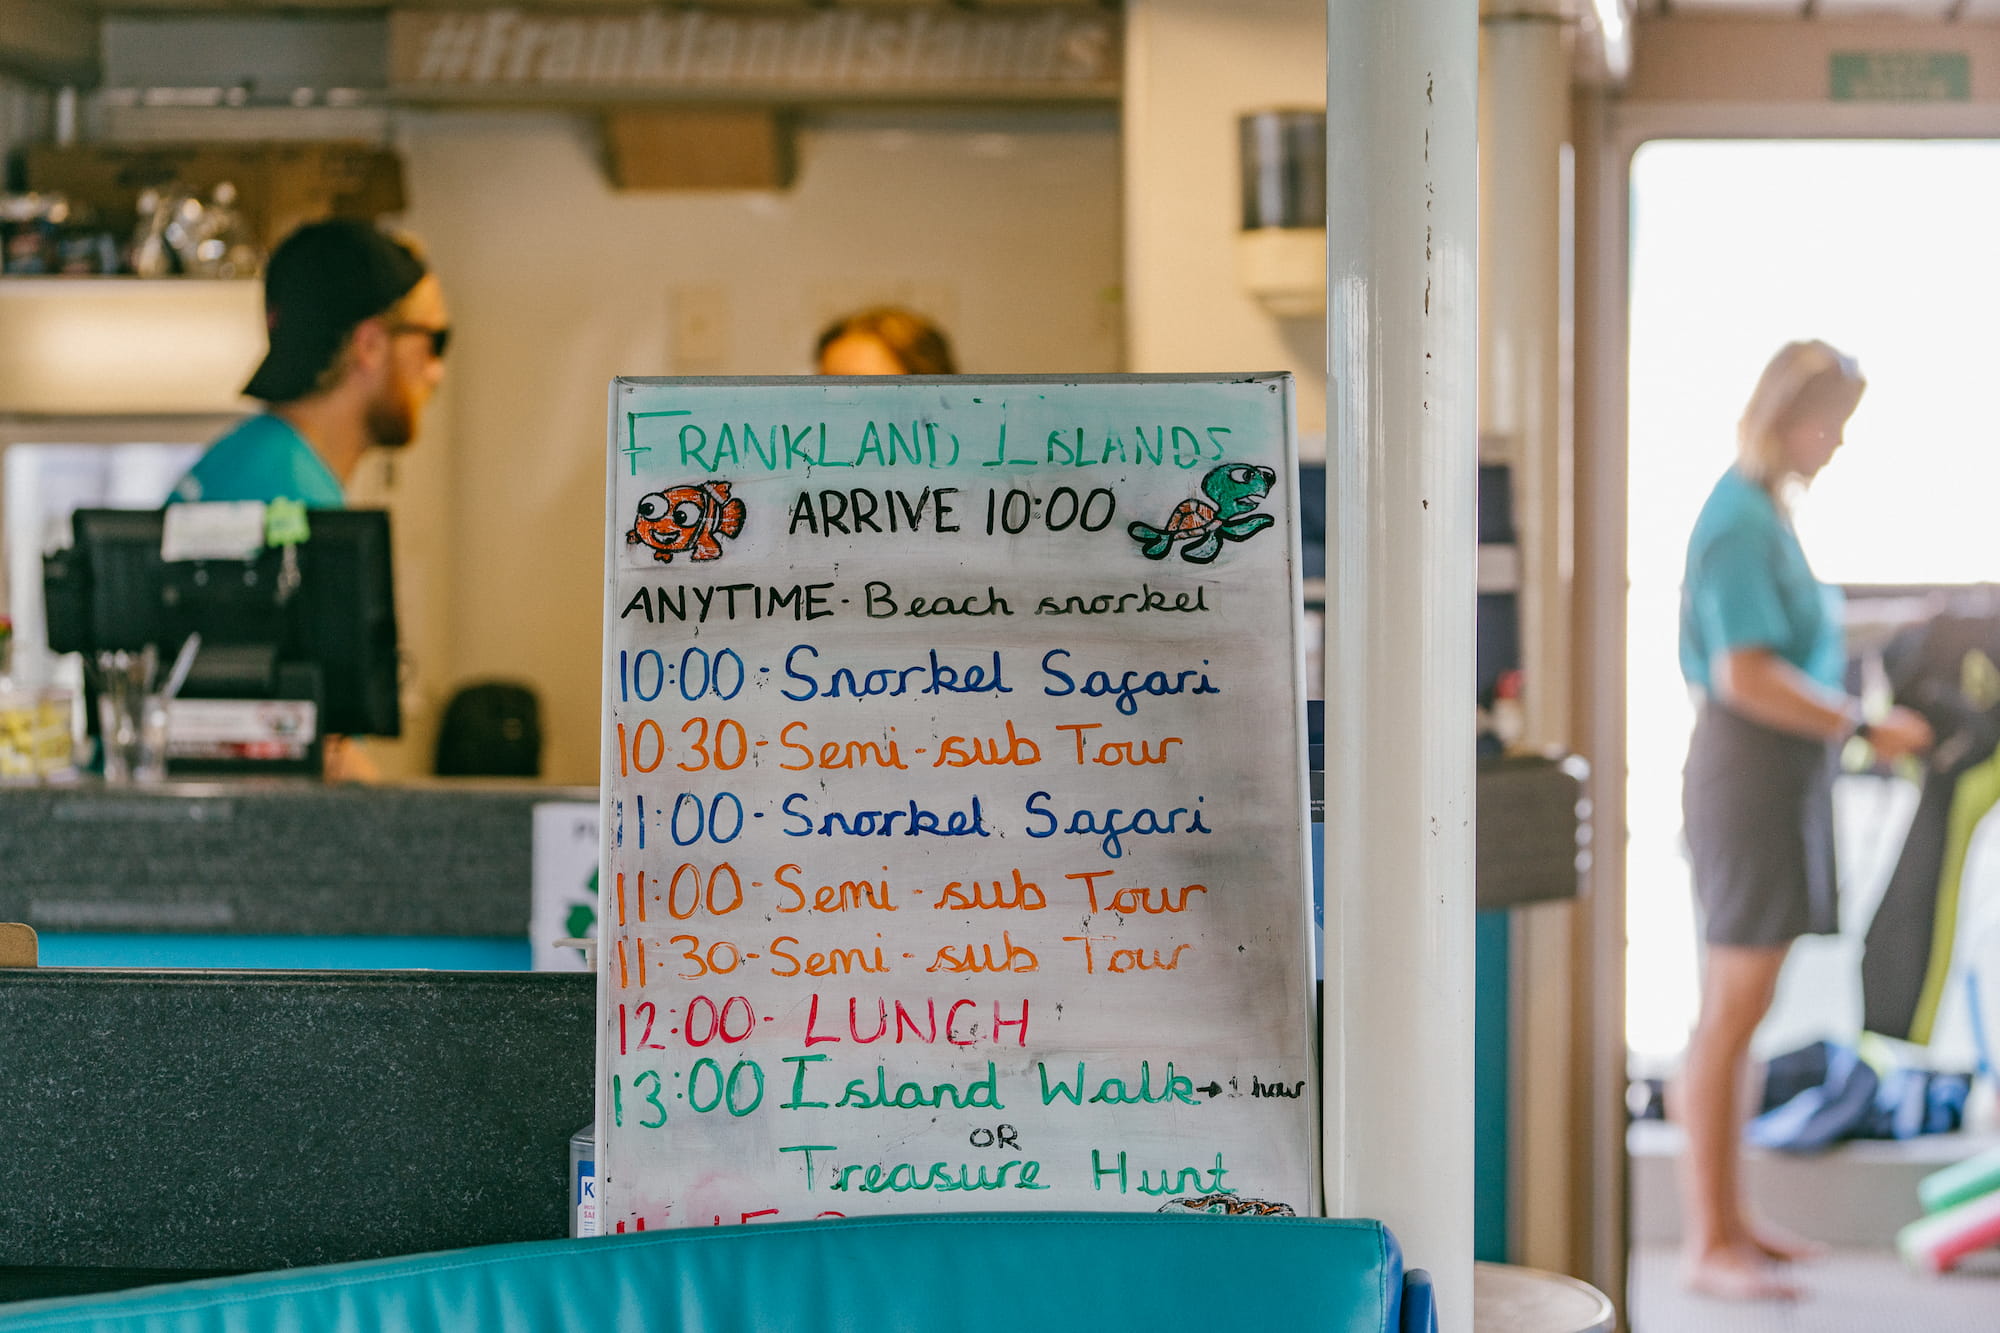 #FranklandIslands
FRANKLAND ISLANDS
ARRIVE 10:00
ANYTIME - Beach snorkel
10:00 - Snorkel Safari
10:30 - Semi-sub Tour
11:00 - Snorkel Safari
11:00 - Semi-sub Tour
11:30 - Semi-sub Tour
12:00 - LUNCH
13:00 Island Walk → 1 hour
OR
Treasure Hunt